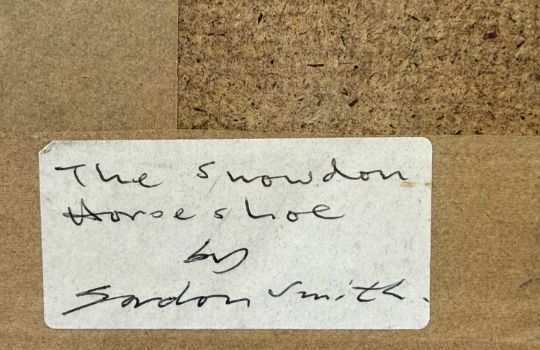 The Snowdon
Horse shoe
by
Gordon Smith.